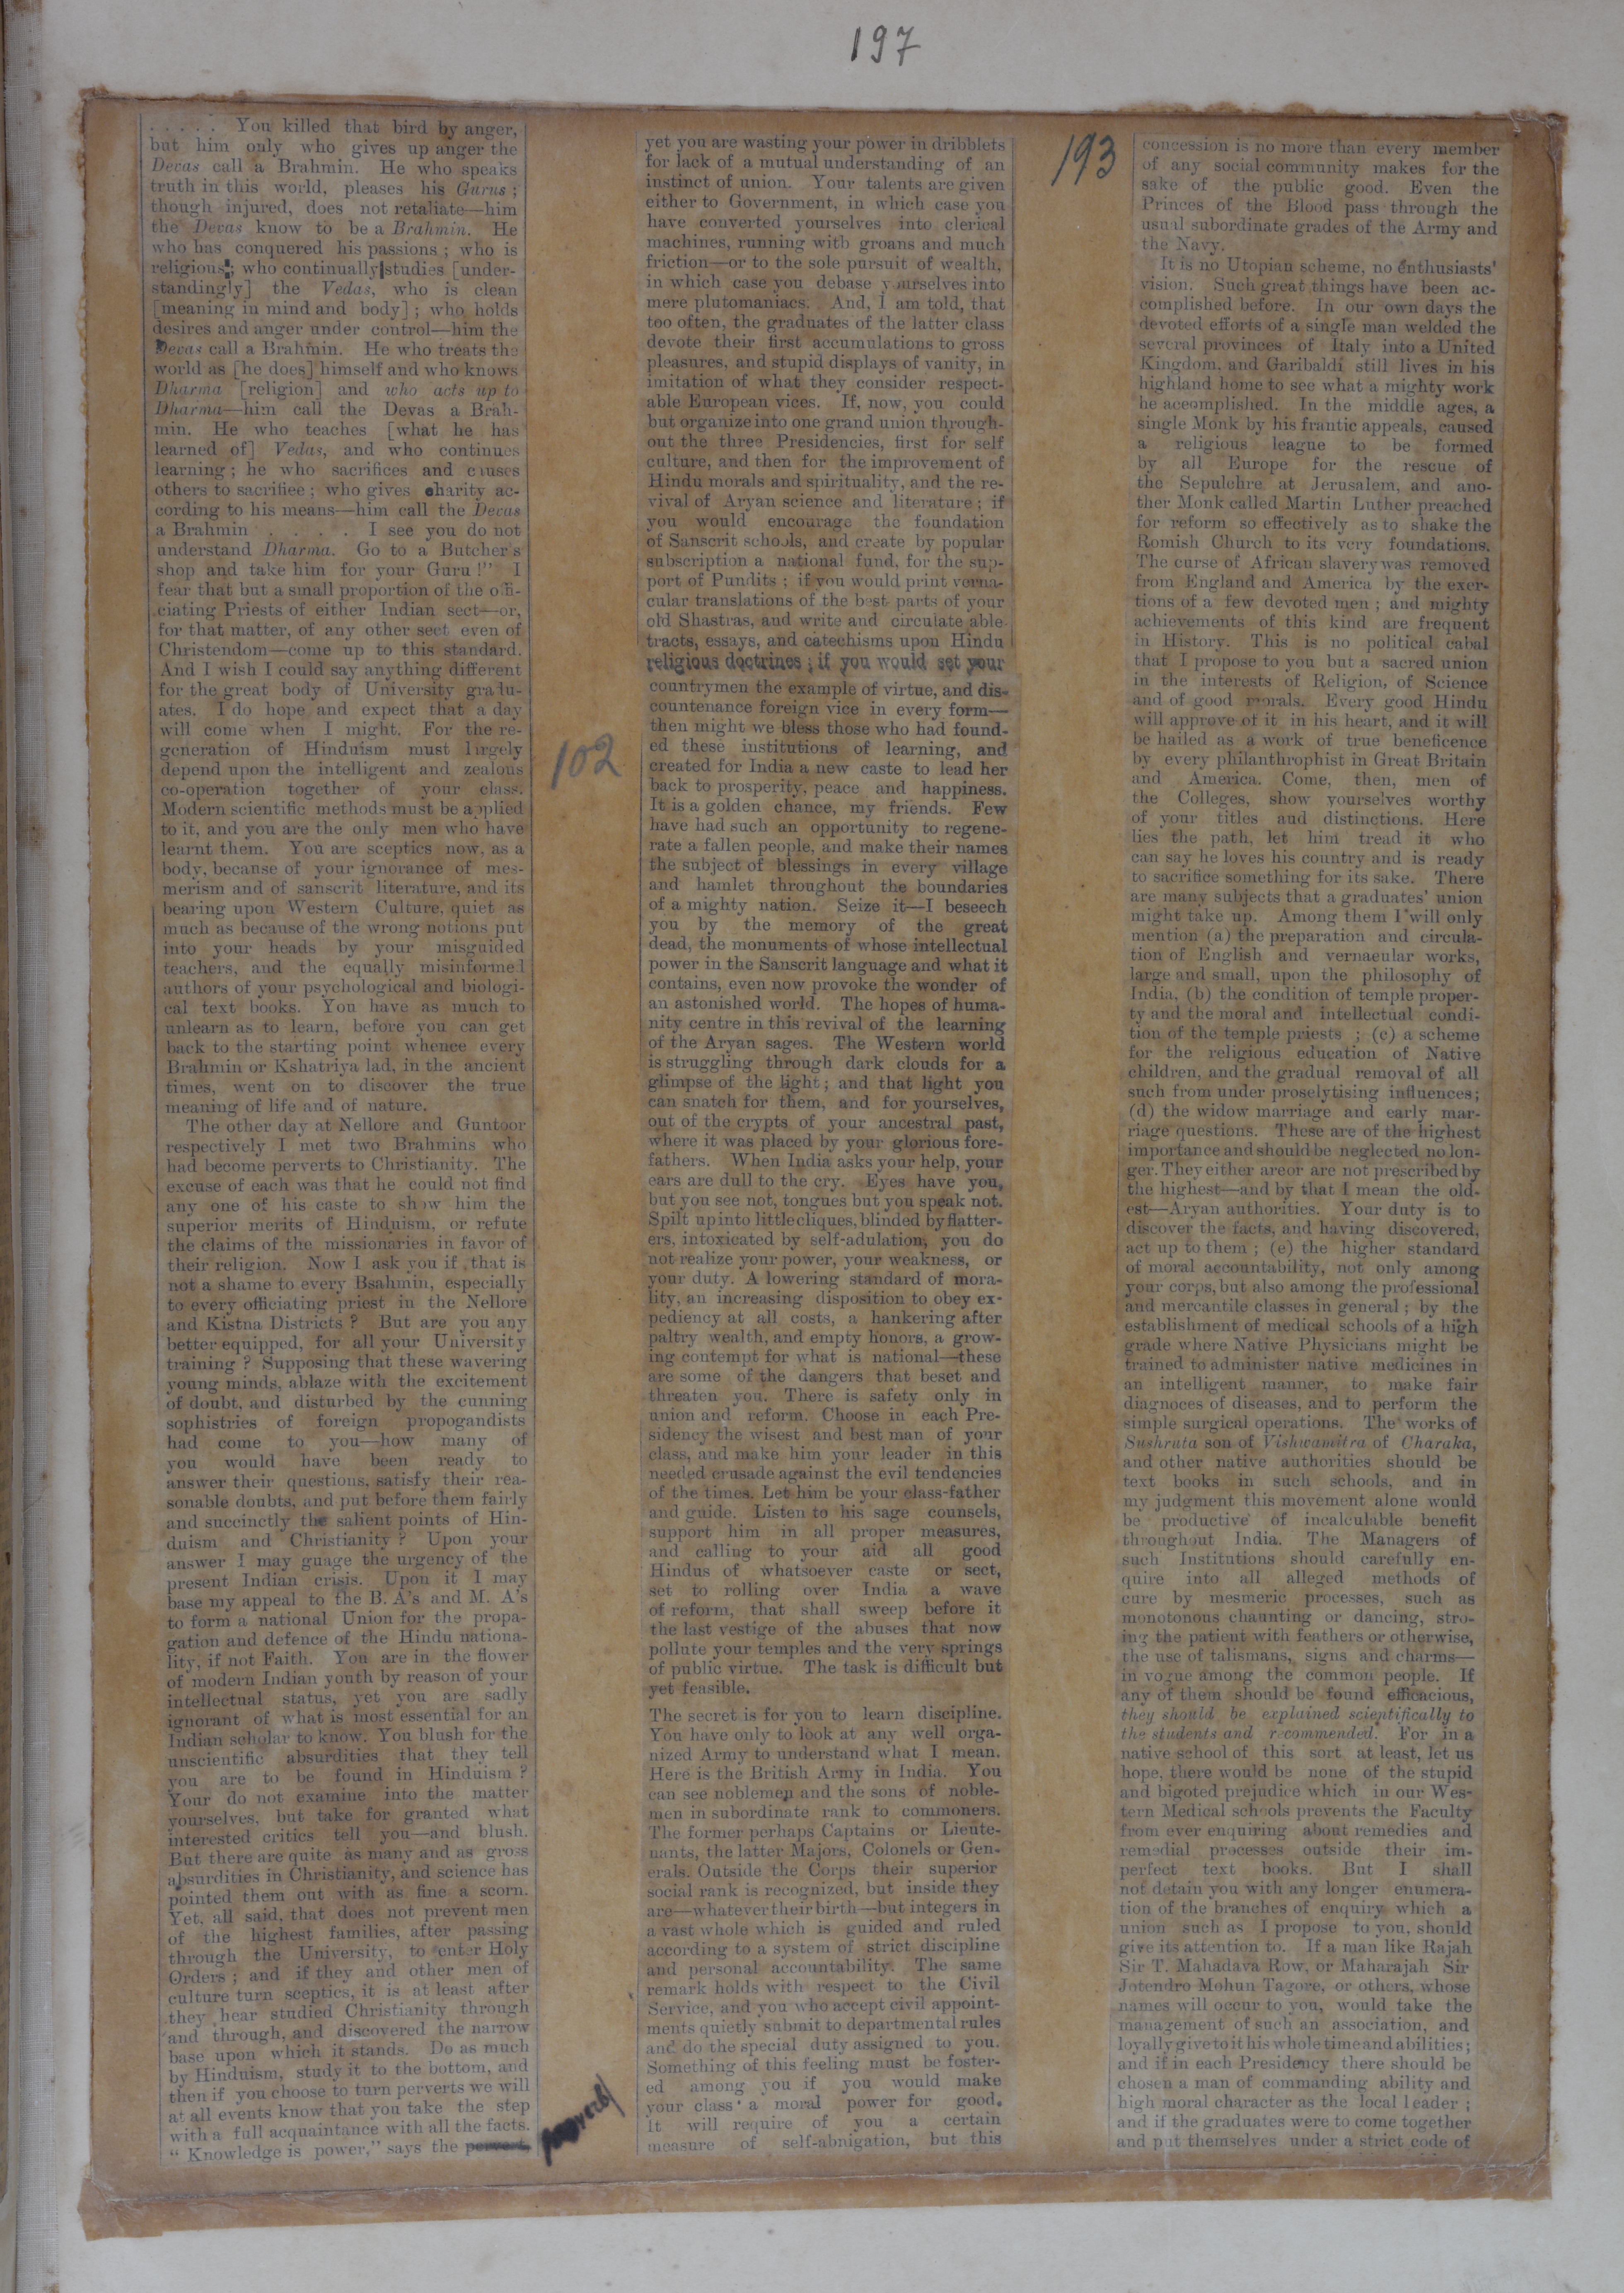 197
. . . . . You killed that bird by anger,
but him only who gives up anger the
Devas call a Brahmin. He who speaks
truth in this world, pleases his Gurus ;
though injured, does not retaliate—him
the Devas know to be a Brahmin. He
who has conquered his passions ; who is
religious ; who continually studies [under-
standingly] the Vedas, who is clean
[meaning in mind and body] ; who holds
desires and anger under control—him the
Devas call a Brahmin. He who treats the
world as [he does] himself and who knows
Dharma [religion] and who acts up to
Dharma—him call the Devas a Brah-
min. He who teaches [what he has
learned of] Vedas, and who continues
learning ; he who sacrifices and causes
others to sacrifiee ; who gives charity ac-
cording to his means—him call the Devas
a Brahmin . . . . I see you do not
understand Dharma. Go to a Butcher's
shop and take him for your Guru !" I
fear that but a small proportion of the offi-
ciating Priests of either Indian sect—or,
for that matter, of any other sect even of
Christendom—come up to this standard.
And I wish I could say anything different
for the great body of University gradu-
ates. I do hope and expect that a day
will come when I might. For the re-
generation of Hinduism must largely
depend upon the intelligent and zealous
co-operation together of your class.
Modern scientific methods must be applied
to it, and you are the only men who have
learnt them. You are sceptics now, as a
body, because of your ignorance of mes-
merism and of sanscrit literature, and its
bearing upon Western Culture, quiet as
much as because of the wrong notions put
into your heads by your misguided
teachers, and the equally misinformed
authors of your psychological and biologi-
cal text books. You have as much to
unlearn as to learn, before you can get
back to the starting point whence every
Brahmin or Kshatriya lad, in the ancient
times, went on to discover the true
meaning of life and of nature.
The other day at Nellore and Guntoor
respectively I met two Brahmins who
had become perverts to Christianity. The
excuse of each was that he could not find
any one of his caste to show him the
superior merits of Hinduism, or refute
the claims of the missionaries in favor of
their religion. Now I ask you if that is
not a shame to every Bsahmin, especially
to every officiating priest in the Nellore
and Kistna Districts ? But are you any
better equipped, for all your University
training ? Supposing that these wavering
young minds, ablaze with the excitement
of doubt, and disturbed by the cunning
sophistries of foreign propogandists
had come to you—how many of
you would have been ready to
answer their questions, satisfy their rea-
sonable doubts, and put before them fairly
and succinctly the salient points of Hin-
duism and Christianity ? Upon your
answer I may guage the urgency of the
present Indian crisis. Upon it I may
base my appeal to the B. A's and M. A's
to form a national Union for the propa-
gation and defence of the Hindu nationa-
lity, if not Faith. You are in the flower
of modern Indian youth by reason of your
intellectual status, yet you are sadly
ignorant of what is most essential for an
Indian scholar to know. You blush for the
unscientific absurdities that they tell
you are to be found in Hinduism ?
Your do not examine into the matter
yourselves, but take for granted what
interested critics tell you—and blush.
But there are quite as many and as gross
absurdities in Christianity, and science has
pointed them out with as fine a scorn.
Yet, all said, that does not prevent men
of the highest families, after passing
through the University, to enter Holy
Orders ; and if they and other men of
culture turn sceptics, it is at least after
they hear studied Christianity through
and through, and discovered the narrow
base upon which it stands. Do as much
by Hinduism, study it to the bottom, and
then if you choose to turn perverts we will
at all events know that you take the step
with a full acquaintance with all the facts.
" Knowledge is power," says the pervert
proverb/
102
yet you are wasting your power in dribblets
for lack of a mutual understanding of an
instinct of union. Your talents are given
either to Government, in which case you
have converted yourselves into clerical
machines, running with groans and much
friction—or to the sole pursuit of wealth,
in which case you debase yourselves into
mere plutomaniacs. And, I am told, that
too often, the graduates of the latter class
devote their first accumulations to gross
pleasures, and stupid displays of vanity, in
imitation of what they consider respect-
able European vices. If, now, you could
but organize into one grand union through-
out the three Presidencies, first for self
culture, and then for the improvement of
Hindu morals and spirituality, and the re-
vival of Aryan science and literature ; if
you would encourage the foundation
of Sanscrit schools, and create by popular
subscription a national fund, for the sup-
port of Pundits ; if you would print verna-
cular translations of the best parts of your
old Shastras, and write and circulate able
tracts, essays, and catechisms upon Hindu
religious doctrines ; if you would set your
countrymen the example of virtue, and dis-
countenance foreign vice in every form—
then might we bless those who had found-
ed these institutions of learning, and
created for India a new caste to lead her
back to prosperity, peace and happiness.
It is a golden chance, my friends. Few
have had such an opportunity to regene-
rate a fallen people, and make their names
the subject of blessings in every village
and hamlet throughout the boundaries
of a mighty nation. Seize it—I beseech
you by the memory of the great
dead, the monuments of whose intellectual
power in the Sanscrit language and what it
contains, even now provoke the wonder of
an astonished world. The hopes of huma-
nity centre in this revival of the learning
of the Aryan sages. The Western world
is struggling through dark clouds for a
glimpse of the light ; and that light you
can snatch for them, and for yourselves,
out of the crypts of your ancestral past,
where it was placed by your glorious fore-
fathers. When India asks your help, your
ears are dull to the cry. Eyes have you,
but you see not, tongues but you speak not.
Spilt up into little cliques, blinded by flatter-
ers, intoxicated by self-adulation, you do
not realize your power, your weakness, or
your duty. A lowering standard of mora-
lity, an increasing disposition to obey ex-
pediency at all costs, a hankering after
paltry wealth, and empty honors, a grow-
ing contempt for what is national—these
are some of the dangers that beset and
threaten you. There is safety only in
union and reform. Choose in each Pre-
sidency the wisest and best man of your
class, and make him your leader in this
needed crusade against the evil tendencies
of the times. Let him be your class-father
and guide. Listen to his sage counsels,
support him in all proper measures,
and calling to your aid all good
Hindus of whatsoever caste or sect,
set to rolling over India a wave
of reform, that shall sweep before it
the last vestige of the abuses that now
pollute your temples and the very springs
of public virtue. The task is difficult but
yet feasible.
The secret is for you to learn discipline.
You have only to look at any well orga-
nized Army to understand what I mean.
Here is the British Army in India. You
can see noblemen and the sons of noble-
men in subordinate rank to commoners.
The former perhaps Captains or Lieute-
nants, the latter Majors, Colonels or Gen-
erals. Outside the Corps their superior
social rank is recognized, but inside they
are—whatever their birth—but integers in
a vast whole which is guided and ruled
according to a system of strict discipline
and personal accountability. The same
remark holds with respect to the Civil
Service, and you who accept civil appoint-
ments quietly submit to departmental rules
and do the special duty assigned to you.
Something of this feeling must be foster-
ed among you if you would make
your class a moral power for good.
It will require of you a certain
measure of self-abnigation, but this
193
concession is no more than every member
of any social community makes for the
sake of the public good. Even the
Princes of the Blood pass through the
usual subordinate grades of the Army and
the Navy.
It is no Utopian scheme, no enthusiasts'
vision. Such great things have been ac-
complished before. In our own days the
devoted efforts of a single man welded the
several provinces of Italy into a United
Kingdom, and Garibaldi still lives in his
highland home to see what a mighty work
he aceomplished. In the middle ages, a
single Monk by his frantic appeals, caused
a religious league to be formed
by all Europe for the rescue of
the Sepulchre at Jerusalem, and ano-
ther Monk called Martin Luther preached
for reform so effectively as to shake the
Romish Church to its very foundations.
The curse of African slavery was removed
from England and America by the exer-
tions of a few devoted men ; and mighty
achievements of this kind are frequent
in History. This is no political cabal
that I propose to you but a sacred union
in the interests of Religion, of Science
and of good morals. Every good Hindu
will approve of it in his heart, and it will
be hailed as a work of true beneficence
by every philanthrophist in Great Britain
and America. Come, then, men of
the Colleges, show yourselves worthy
of your titles aud distinctions. Here
lies the path, let him tread it who
can say he loves his country and is ready
to sacrifice something for its sake. There
are many subjects that a graduates' union
might take up. Among them I will only
mention (a) the preparation and circula-
tion of English and vernaeular works,
large and small, upon the philosophy of
India, (b) the condition of temple proper-
ty and the moral and intellectual condi-
tion of the temple priests ; (c) a scheme
for the religious education of Native
children, and the gradual removal of all
such from under proselytising influences ;
(d) the widow marriage and early mar-
riage questions. These are of the highest
importance and should be neglected no lon-
ger. They either are or are not prescribed by
the highest—and by that I mean the old-
est—Aryan authorities. Your duty is to
discover the facts, and having discovered,
act up to them ; (e) the higher standard
of moral accountability, not only among
your corps, but also among the professional
and mercantile classes in general ; by the
establishment of medical schools of a high
grade where Native Physicians might be
trained to administer native medicines in
an intelligent manner, to make fair
diagnoces of diseases, and to perform the
simple surgical operations. The works of
Sushruta son of Vishwamitra of Charaka,
and other native authorities should be
text books in such schools, and in
my judgment this movement alone would
be productive of incalculable benefit
throughout India. The Managers of
such Institutions should carefully en-
quire into all alleged methods of
cure by mesmeric processes, such as
monotonous chaunting or dancing, stro-
ing the patient with feathers or otherwise,
the use of talismans, signs and charms—
in vogue among the common people. If
any of them should be found efficacious,
they should be explained scientifically to
the students and recommended. For in a
native school of this sort at least, let us
hope, there would be none of the stupid
and bigoted prejudice which in our Wes-
tern Medical schools prevents the Faculty
from ever enquiring about remedies and
remedial processes outside their im-
perfect text books. But I shall
not detain you with any longer enumera-
tion of the branches of enquiry which a
union such as I propose to you, should
give its attention to. If a man like Rajah
Sir T. Mahadava Row, or Maharajah Sir
Jotendro Mohun Tagore, or others, whose
names will occur to you, would take the
management of such an association, and
loyally give to it his whole time and abilities ;
and if in each Presidency there should be
chosen a man of commanding ability and
high moral character as the local leader ;
and if the graduates were to come together
and put themselves under a strict code of